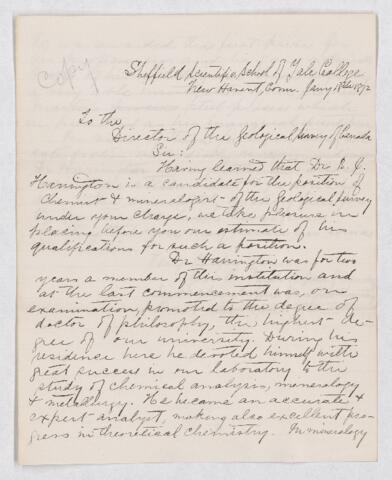 Copy
Sheffield Scientific School of Yale College
New Haven, Conn. Jany 1872
To the
Director of the Geological Survey of Canada
Sir:
Having learned that Dr B. J.
Harrington is a candidate for the position of
Chemist & mineralogist of the Geological Survey
under your charge, we take pleasure in
placing before you our estimate of his
qualifications for such a position.
Dr Harrington was for two
years a member of this institution and
at the last commencement was, on
examination, promoted to the degree of
doctor of philosophy, the highest de-
gree of our university. During his
residence here he devoted himself with
great success in our laboratory to the
study of chemical analysis, mineralogy
& metallurgy. He became an accurate &
expert analyst, making also excellent pro-
gress in theoretical chemistry. In mineralogy